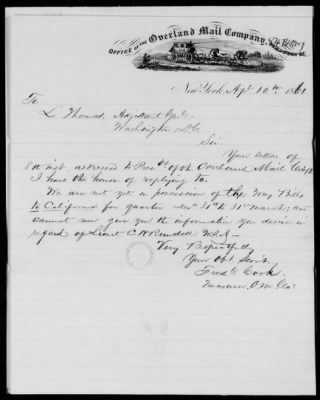 OFFICE of the Overland Mail Company,
New York Apl 10th 1861
To
L Thomas, Adjutant Genl.
Washington D.C.
Sir
Your letter of
inst addressed to Prest of the Overland Mail Co
I have the honor of replying to.
We are not yet in possession of the Way Bills
to California for quarter 31st March, and
cannot now give you the information you desire in
regard of Lieut C H Rundell U.S.A—
Very Respectfully
Your Obt Servt
Fredk Cook.
Treasurer, O.M. Co.